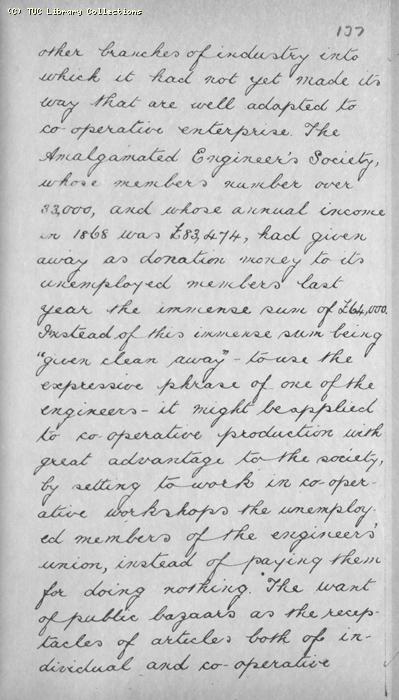 (C) TUC Library Collections
137
other branches of industry into
which it had not yet made its
way that are well adapted to
co-operative enterprise. The
Amalgamated Engineer's Society,
whose members number over
33,000, and whose annual income
in 1868 was £83,474, had given
away as donation money to its
unemployed members last
year the immense sum of £64,000.
Instead of this immense sum being
"given clean away" - to use the
expressive phrase of one of the
engineers - it might be applied
to co-operative production with
great advantage to the society,
by setting to work in co-oper-
ative workshops the unemploy-
ed members of the engineers'
union, instead of paying them
for doing nothing. The want
of public bazaars as the recep-
tacles of articles both of in-
dividual and co-operative